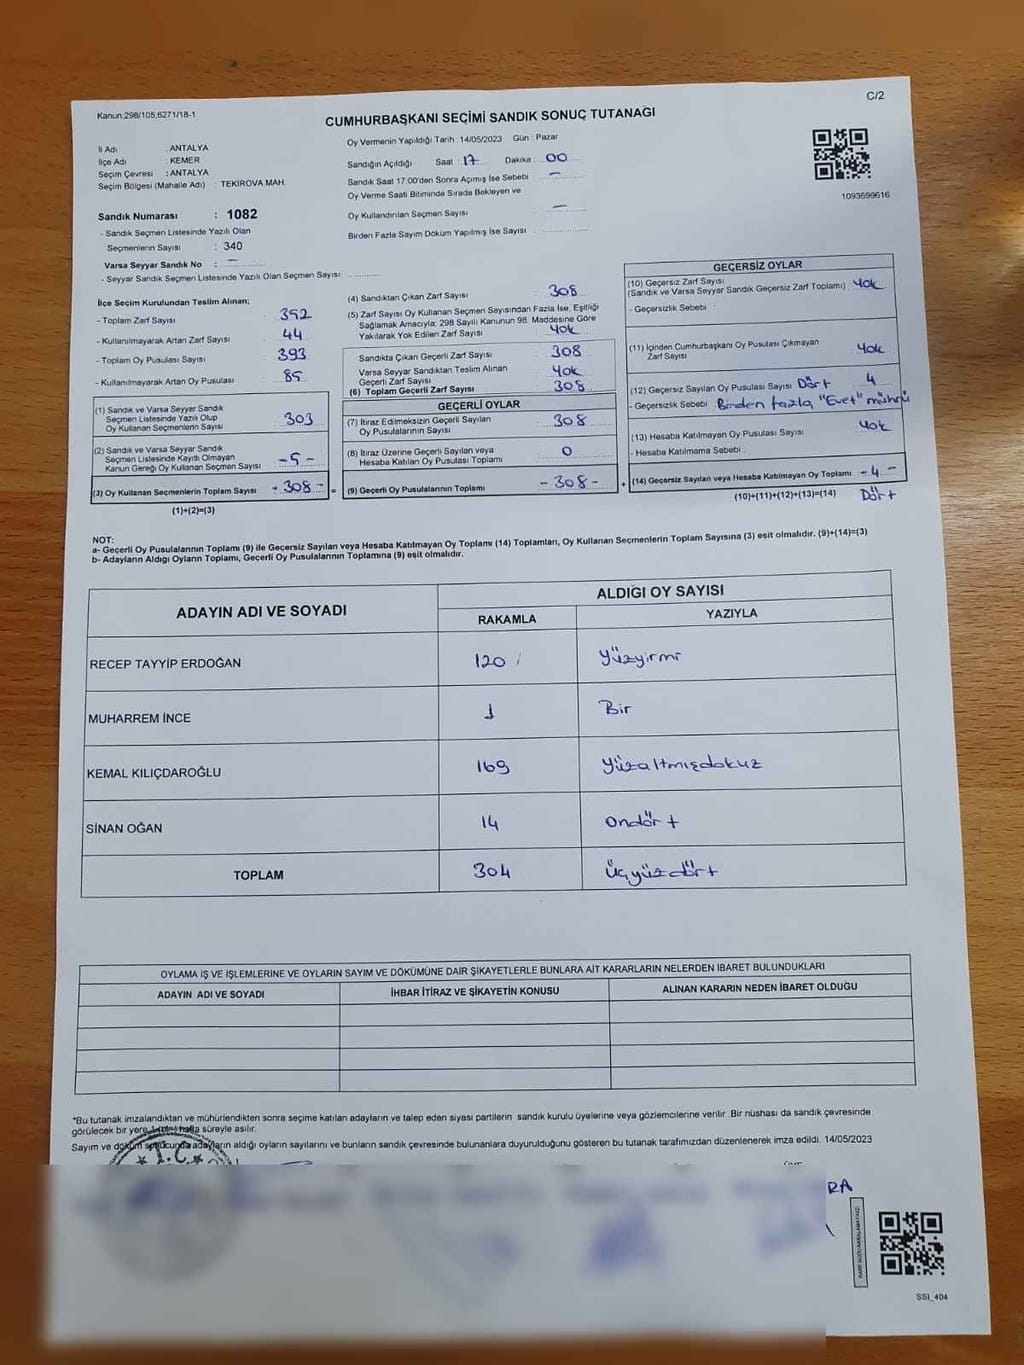 Kanun.298/105,6271/18-1
C/2
CUMHURBAŞKANI SEÇİMİ SANDIK SONUÇ TUTANAĞI
İl Adı : ANTALYA
İlçe Adı : KEMER
Seçim Çevresi : ANTALYA
Seçim Bölgesi (Mahalle Adı) : TEKİROVA MAH.
Oy Vermenin Yapıldığı Tarih :14/05/2023 Gün : Pazar
Sandığın Açıldığı Saat : 17 Dakika : 00
Sandık Saat 17:00'den Sonra Açımış İse Sebebi : —
Oy Verme Saati Bitiminde Sırada Bekleyen ve
Oy Kullandırılan Seçmen Sayısı : —
Birden Fazla Sayım Döküm Yapılmış İse Sayısı :
1093699616
Sandık Numarası : 1082
- Sandık Seçmen Listesinde Yazılı Olan
Seçmenlerin Sayısı : 340
Varsa Seyyar Sandık No : —
- Seyyar Sandık Seçmen Listesinde Yazılı Olan Seçmen Sayısı:
İlçe Seçim Kurulundan Teslim Alınan;
- Toplam Zarf Sayısı : 352
- Kullanılmayarak Artan Zarf Sayısı : 44
- Toplam Oy Pusulası Sayısı : 393
- Kullanılmayarak Artan Oy Pusulası : 85
(1) Sandık ve Varsa Seyyar Sandık
Seçmen Listesinde Yazılı Olup
Oy Kullanan Seçmenlerin Sayısı : 303
(2) Sandık ve Varsa Seyyar Sandık
Seçmen Listesinde Kayıtlı Olmayan
Kanun Gereği Oy Kullanan Seçmen Sayısı : -5-
(3) Oy Kullanan Seçmenlerin Toplam Sayısı - 308 -
(1)+(2)=(3)
(4) Sandıktan Çıkan Zarf Sayısı : 308
(5) Zarf Sayısı Oy Kullanan Seçmen Sayısından Fazla İse, Eşitliği
Sağlamak Amacıyla; 298 Sayılı Kanunun 98. Maddesine Göre
Yakılarak Yok Edilen Zarf Sayısı : Yok
Sandıkta Çıkan Geçerli Zarf Sayısı : 308
Varsa Seyyar Sandıktan Teslim Alınan
Geçerli Zarf Sayısı : Yok
(6) Toplam Geçerli Zarf Sayısı : 308
=
GEÇERLİ OYLAR
(7) İtiraz Edilmeksizin Geçerli Sayılan
Oy Pusulalarının Sayısı : 308
(8) İtiraz Üzerine Geçerli Sayılan veya
Hesaba Katılan Oy Pusulası Toplamı : 0
(9) Geçerli Oy Pusulalarının Toplamı - 308 -
+
GEÇERSİZ OYLAR
(10) Geçersiz Zarf Sayısı
(Sandık ve Varsa Seyyar Sandık Geçersiz Zarf Toplamı) : Yok
- Geçersizlik Sebebi :
(11) İçinden Cumhurbaşkanı Oy Pusulası Çıkmayan
Zarf Sayısı : Yok
(12) Geçersiz Sayılan Oy Pusulası Sayısı : Dört 4
- Geçersizlik Sebebi : Birden fazla "Evet" mührü
(13) Hesaba Katılmayan Oy Pusulası Sayısı : Yok
- Hesaba Katılmama Sebebi :
(14) Geçersiz Sayılan veya Hesaba Katılmayan Oy Toplamı - 4 -
(10)+(11)+(12)+(13)=(14) Dört
NOT:
a- Geçerli Oy Pusulalarının Toplamı (9) ile Geçersiz Sayılan veya Hesaba Katılmayan Oy Toplamı (14) Toplamları, Oy Kullanan Seçmenlerin Toplam Sayısına (3) eşit olmalıdır. (9)+(14)=(3)
b- Adayların Aldığı Oyların Toplamı, Geçerli Oy Pusulalarının Toplamına (9) eşit olmalıdır.
ADAYIN ADI VE SOYADI
ALDIĞI OY SAYISI
RAKAMLA YAZIYLA
RECEP TAYYİP ERDOĞAN 120 Yüzyirmi
MUHARREM İNCE 1 Bir
KEMAL KILIÇDAROĞLU 169 Yüzaltmışdokuz
SİNAN OĞAN 14 Ondört
TOPLAM 304 Üçyüzdört
OYLAMA İŞ VE İŞLEMLERİNE VE OYLARIN SAYIM VE DÖKÜMÜNE DAİR ŞİKAYETLERLE BUNLARA AİT KARARLARIN NELERDEN İBARET BULUNDUKLARI
ADAYIN ADI VE SOYADI İHBAR İTİRAZ VE ŞİKAYETİN KONUSU ALINAN KARARIN NEDEN İBARET OLDUĞU
*Bu tutanak imzalandıktan ve mühürlendikten sonra seçime katılan adayların ve talep eden siyasi partilerin sandık kurulu üyelerine veya gözlemcilerine verilir. Bir nüshası da sandık çevresinde
görülecek bir yere 1 (bir) hafta süreyle asılır.
Sayım ve döküm sonucunda adayların aldığı oyların sayılarını ve bunların sandık çevresinde bulunanlara duyurulduğunu gösteren bu tutanak tarafımızdan düzenlenerek imza edildi. 14/05/2023
T.C.
RA
SSI_404